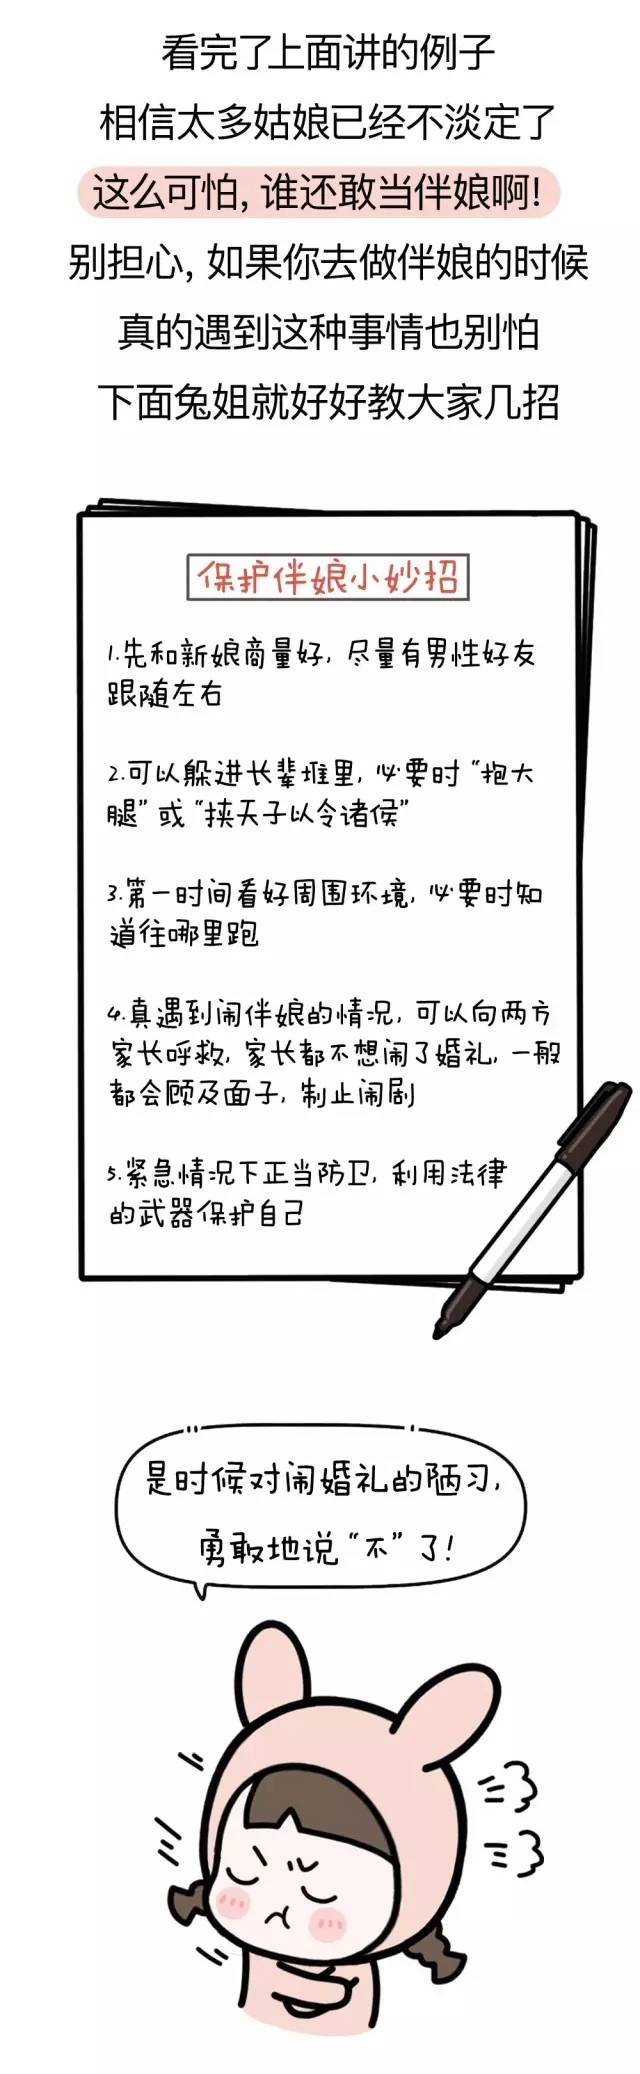 看完了上面讲的例子
相信太多姑娘已经不淡定了
这么可怕, 谁还敢当伴娘啊!
别担心, 如果你去做伴娘的时候
真的遇到这种事情也别怕
下面兔姐就好好教大家几招
保护伴娘小妙招
1.先和新娘商量好, 尽量有男性好友
跟随左右
2.可以躲进长辈堆里, 必要时“抱大
腿”或“挟天子以令诸侯”
3.第一时间看好周围环境, 必要时知
道往哪里跑
4.真遇到闹伴娘的情况, 可以向两方
家长呼救, 家长都不想闹了婚礼, 一般
都会顾及面子, 制止闹剧
5.紧急情况下正当防卫, 利用法律
的武器保护自己
是时候对闹婚礼的陋习,
勇敢地说“不”了!